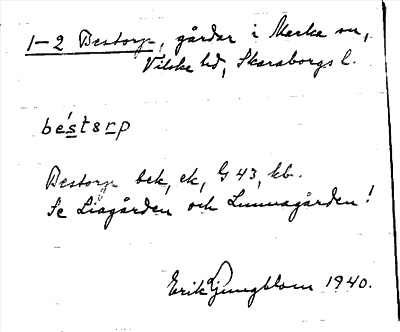 1-2 Bestorp, gårdar i Marka sn,
Vilske hd, Skaraborgs l.
béstɜrp
Bestorp bek, ek, G 43, kb.
Se Liagården och Lunnagården!
Erik Ljungblom 1940.